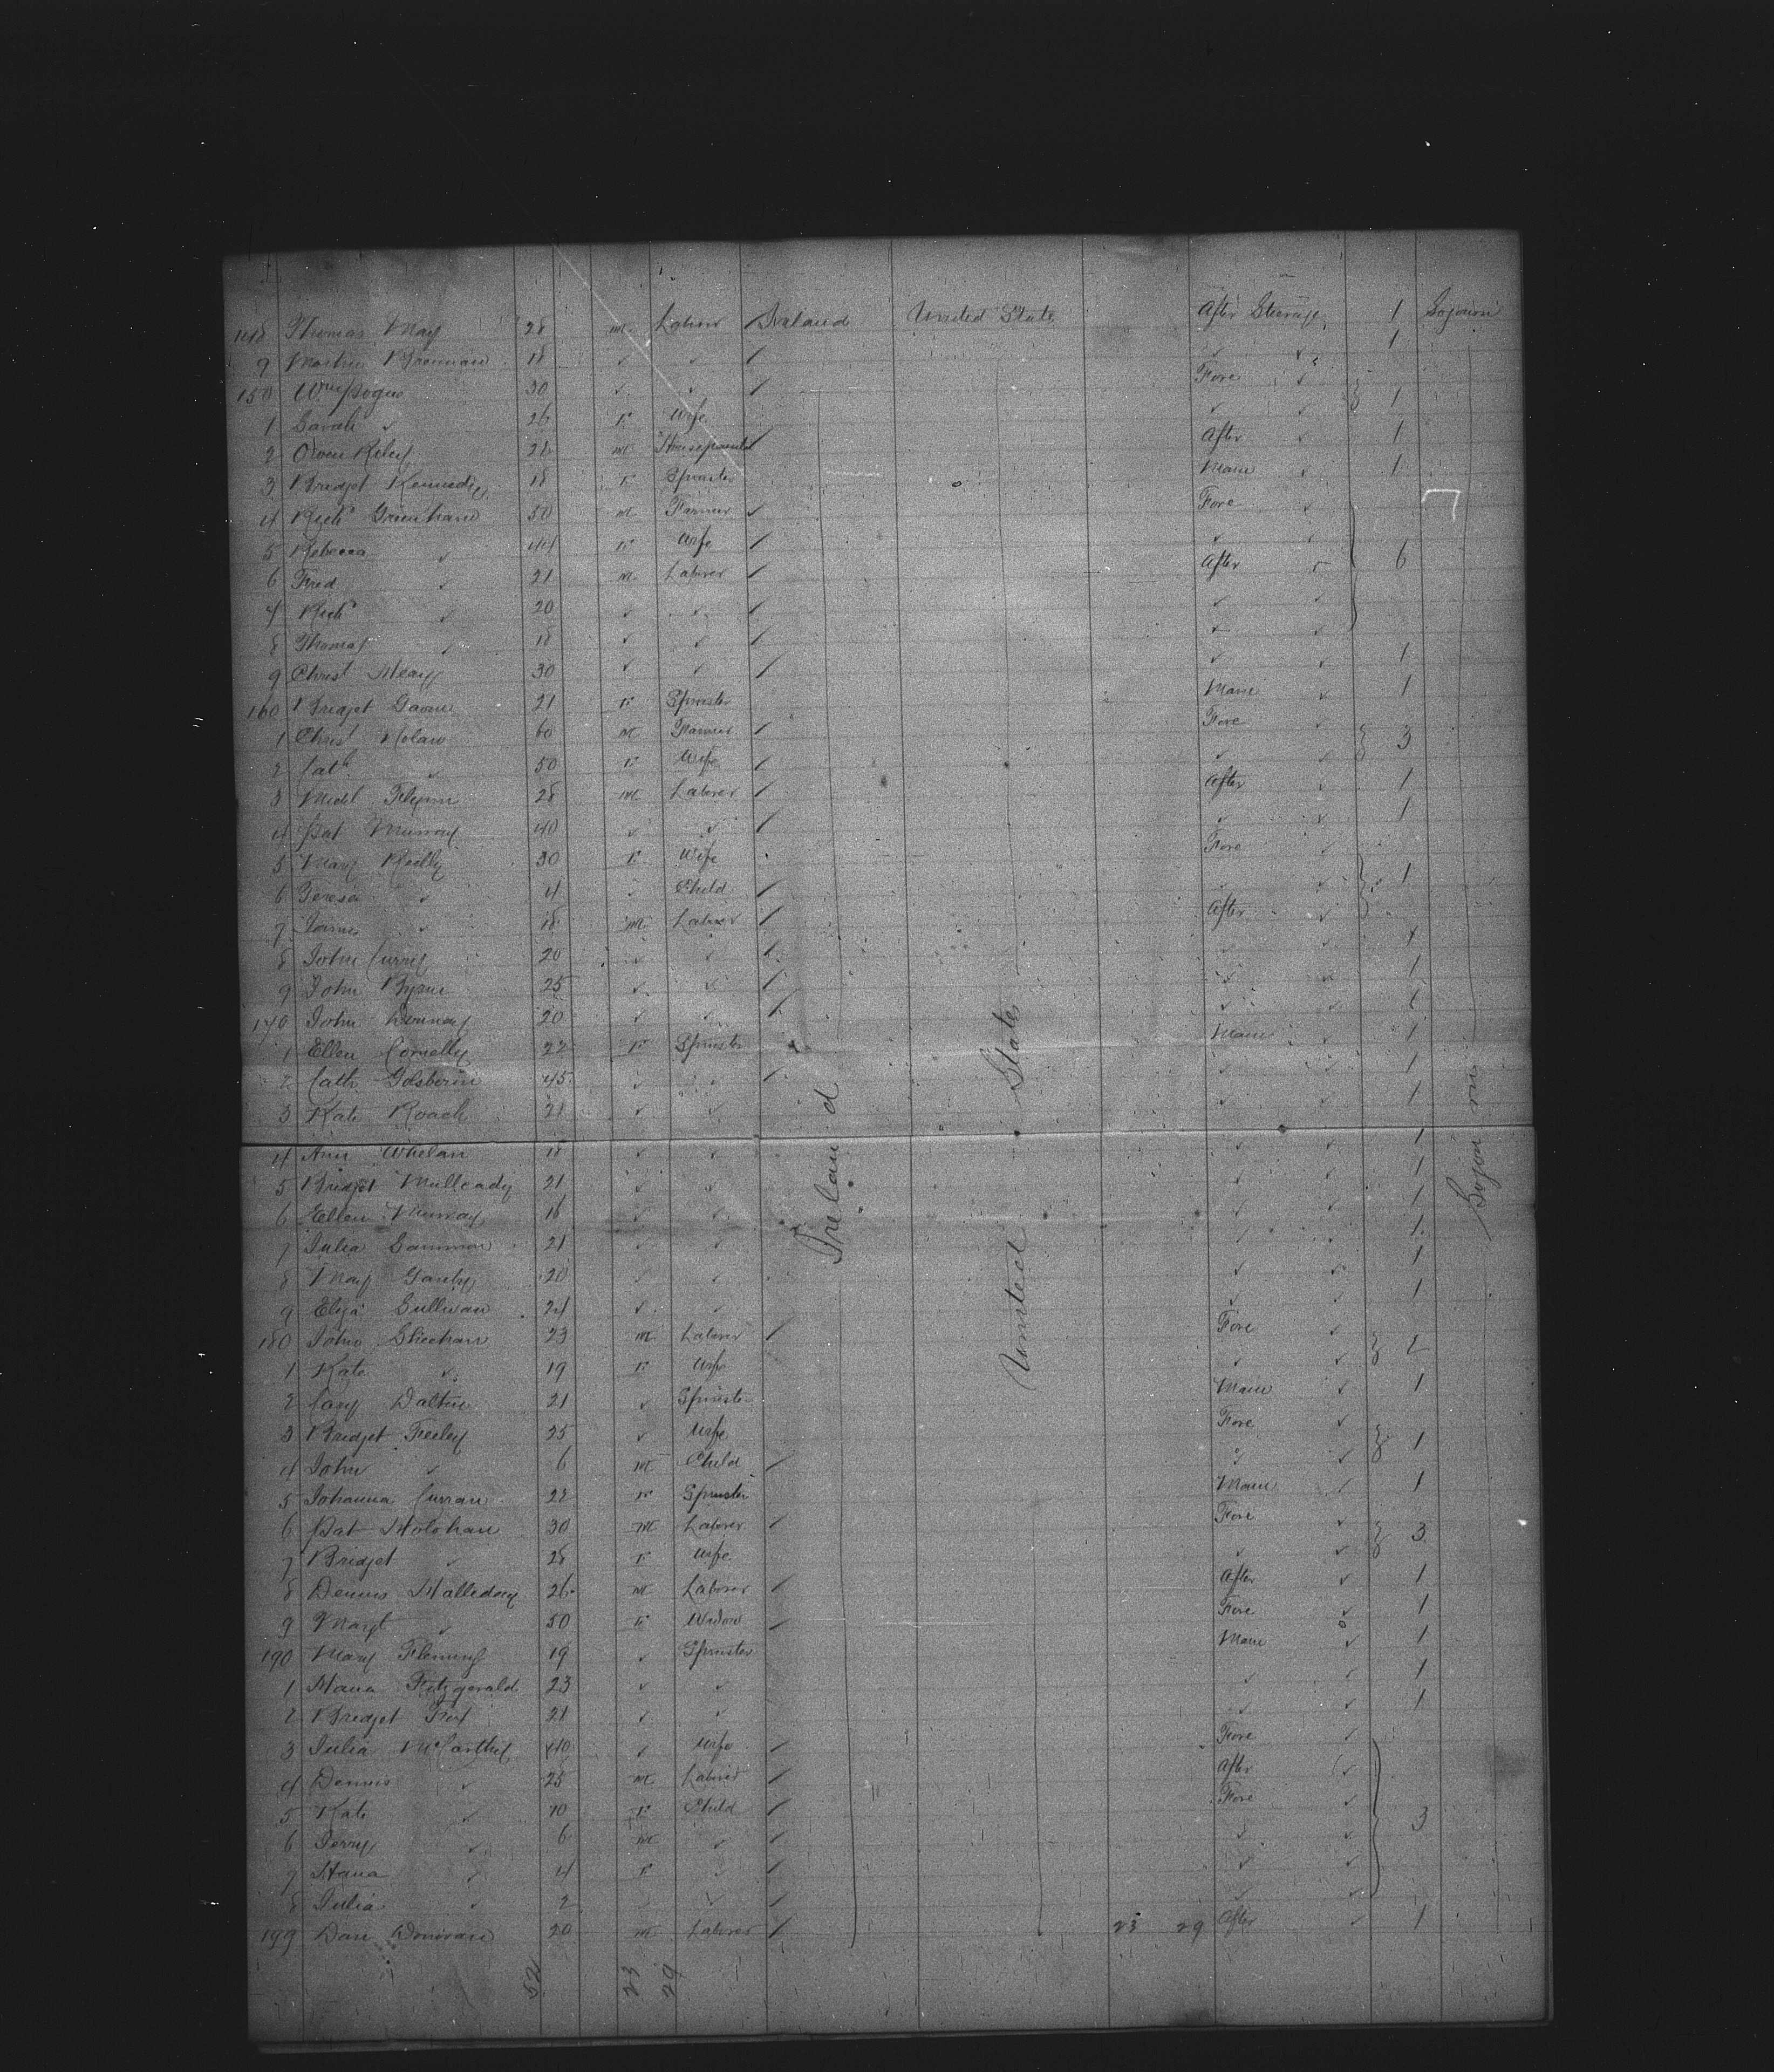 148 Thomas May 28 m Laborer Ireland United State After Steerage 1 Sojourn
9 Martin Brennan 18 ✓ ✓ ✓ ✓ 1
150 Wm Hogue 30 ✓ ✓ Fore ✓
1 Sarah ✓ 26 F Wife ✓ ✓ 1
2 Owen Riley 28 m After ✓ 1
3 Bridget Kennedy 18 F Spinster Main ✓ 1
4 Richd Greenham 50 m Farmer Fore ✓
5 Rebecca ✓ 44 F Wife ✓ ✓
6 Fred ✓ 21 m Laborer After ✓ 6
7 Richd ✓ 20 ✓ ✓ ✓ ✓
8 Thomas ✓ 18 ✓ ✓ ✓ ✓
9 Christ Meary 30 ✓ ✓ ✓ ✓ 1
160 Bridget 21 F Spinster Main ✓ 1
1 Christ Nolan 60 m Farmer Fore ✓
2 Cath ✓ 50 F Wife ✓ ✓ 3
3 Michl Flynn 28 m Laborer After ✓ 1
4 Pat Murray 40 ✓ ✓ ✓ ✓ 1
5 Mary Reilly 30 F Wife Fore ✓
6 Teresa ✓ 4 ✓ Child ✓ ✓ 1
7 James ✓ 18 m Laborer After ✓
8 John Curry 20 ✓ ✓ ✓ ✓ 1
9 John Byrne 25 ✓ ✓ ✓ ✓ 1
170 John 20 ✓ ✓ ✓ ✓ 1
1 Ellen Connelly 22 F Spinster Main ✓ 1
2 Cath 45 ✓ ✓ ✓ ✓ 1
3 Kate Roach 21 ✓ ✓ ✓ ✓ 1
4 Ann Whelan 18 ✓ ✓ ✓ ✓ 1
5 Bridget Mulleady 21 ✓ ✓ ✓ ✓ 1
6 Ellen Murray 16 ✓ ✓ ✓ ✓ 1
7 Julia Sammon 21 ✓ ✓ ✓ ✓ 1
8 Mary 20 ✓ ✓ ✓ ✓ 1
9 Eliza Sullivan 24 ✓ ✓ ✓ ✓ 1
180 John Sheehan 23 m Laborer Fore ✓
1 Kate ✓ 19 F Wife ✓ ✓ 2
2 Dalton 21 ✓ Spinster Main ✓ 1
3 Bridget Feeley 25 ✓ Wife Fore ✓
4 John ✓ 6 m Child ✓ ✓ 1
5 Johanna Curran 22 F Spinster Main ✓ 1
6 Pat Holohan 30 m Laborer Fore ✓
7 Bridget ✓ 28 F Wife ✓ ✓ 3
8 Dennis 26 m Laborer After ✓ 1
9 Margt ✓ 50 F Widow Fore ✓ 1
190 Mary Fleming 19 ✓ Spinster Main ✓ 1
1 Hana Fitzgerald 23 ✓ ✓ ✓ ✓ 1
2 Bridget 21 ✓ ✓ ✓ ✓ 1
3 Julia McCarthy 40 ✓ Wife Fore ✓
4 Dennis ✓ 25 m Laborer After ✓
5 Kate ✓ 10 F Child Fore ✓
6 Jerry ✓ 6 m ✓ ✓ ✓ 3
7 Hana ✓ 4 F ✓ ✓ ✓
8 Julia ✓ 2 ✓ ✓ ✓ ✓
199 Dan Donovan 20 m Laborer 23 29 After ✓ 1
Ireland
United State
Sojourn
52 23 29